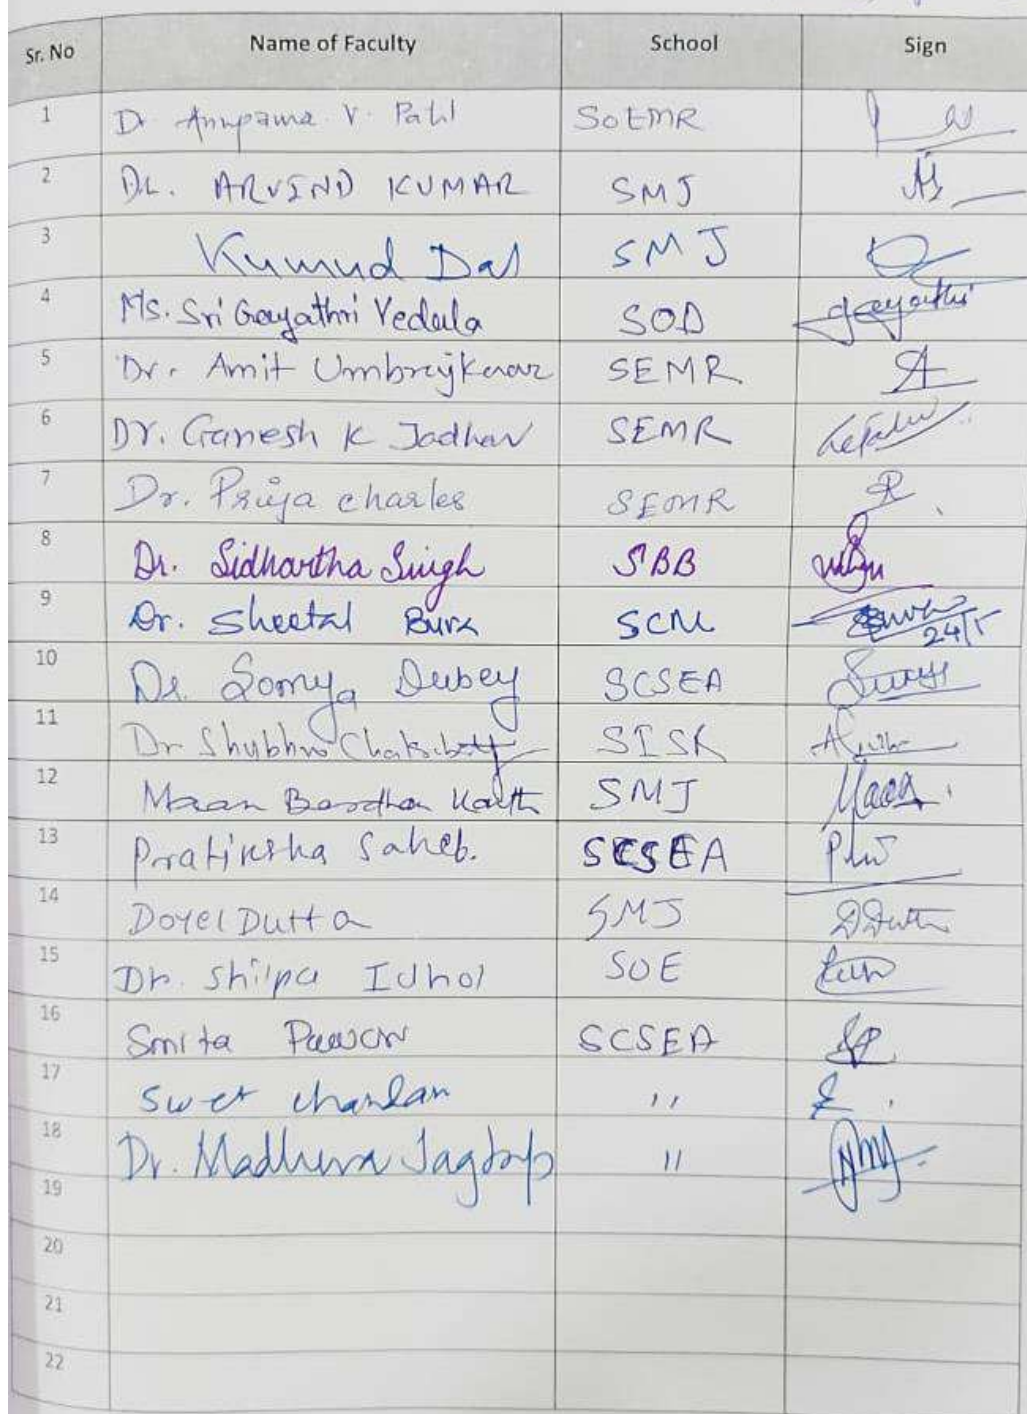 Sr. No Name of Faculty School Sign
1 Dr Anupama V. Patil SoEMR
2 Dr. ARVIND KUMAR SMJ
3 Kumud Das SMJ
4 Ms. Sri Gayathri Vedula SOD gayathri
5 Dr. Amit Umbrajkaar SEMR
6 Dr. Ganesh K Jadhav SEMR
7 Dr. Priya charles SEMR
8 Dr. Sidhartha Singh SBB
9 Dr. Sheetal Bura SCM 24/5
10 Dr. Somya Dubey SCSEA
11 Dr Shubhro Chakraborty SISK
12 Maan Bardhan SMJ
13 Pratiksha Saheb. SCSEA
14 Doyel Dutta SMJ DDutta
15 Dr. Shilpa Idhol SOE
16 Smita Pawar SCSEA
17 Swet chandan "
18 Dr. Madhura Jagtap "
19
20
21
22